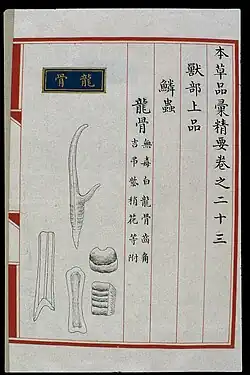 本草品彙精要卷之二十三
獸部上品
鱗蟲
龍骨
無毒白龍骨齒角
吉弔紫梢花等附
龍骨